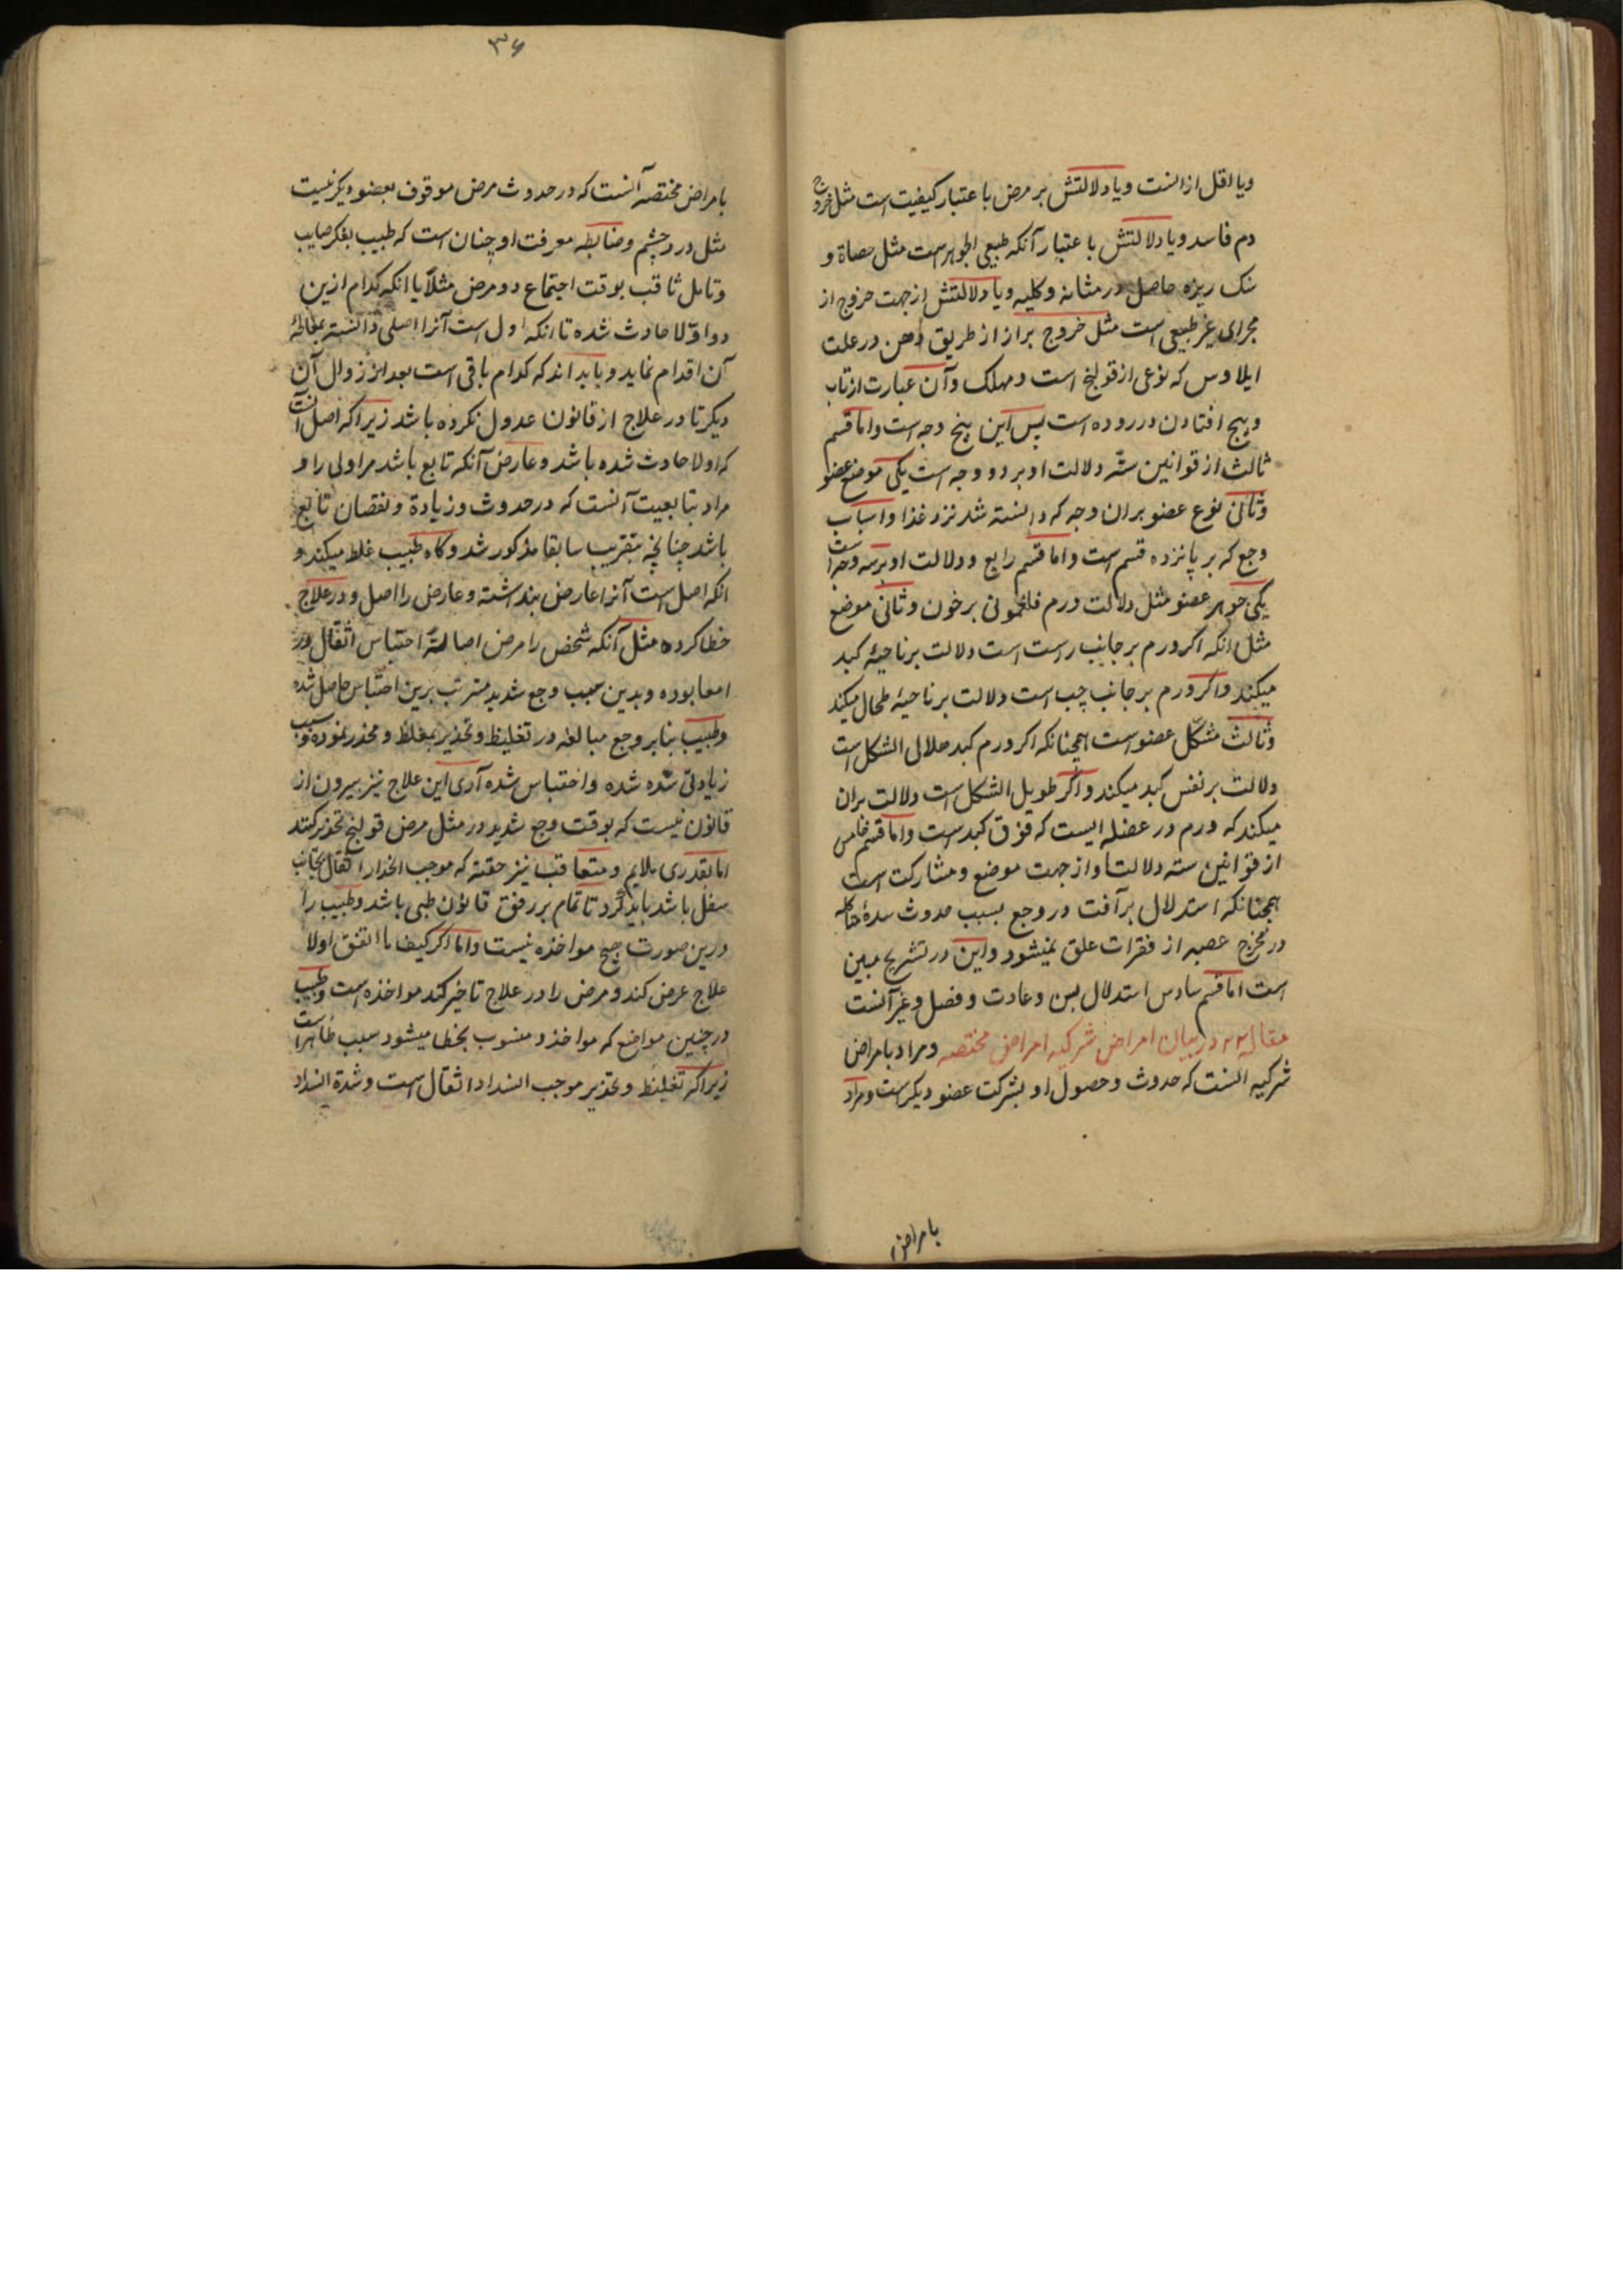 ویا اقل ازانست ویا دلالتش بر مرض باعتبار کیفیت است مثل خروج
دم فاسد ویا دلالتش باعتبار آنکه طبیعی الجوهر است مثل حصاة و
سنک ریزه حاصل در مثانه وکلیه ویا دلالتش از جهت خروج از
مجرای غیر طبیعی است مثل خروج براز از طریق دهن در علت
ایلاوس که نوعی از قولنج است ومهلک وآن عبارت از تاب
وپیچ افتادن در روده است پس این پنج وجه است واما قسم
ثالث از قوانین ستّه دلالت او بر دو وجه است یکی موضع عضو
وثانی نوع عضو بران وجه که دانسته شد نزد غذا واسباب
وجع که بر پانزده قسم است واما قسم رابع ودلالت او بر سه وجه است
یکی جوهر عضو مثل دلالت ورم فلغمونی بر خون وثانی موضع
مثل انکه اکر ورم بر جانب راست است دلالت بر ناحیهٔ کبد
میکند واکر ورم بر جانب چپ است دلالت بر ناحیهٔ طحال میکند
وثالث مشکّل عضو است همچنانکه اکر ورم کبد هلالی الشکل است
دلالت بر نفس کبد میکند واکر طویل الشکل است دلالت بران
میکند که ورم در عضله ایست که فوق کبد است واما قسم خامس
از قوانین سته دلالت او از جهت موضع ومشارکت است
همچنانکه استدلال بر آفت در وجع بسبب حدوث سدهٔ
در مخرج عصبه از فقرات علق میشود واین در تشریح مبین
است اما قسم سادس استدلال بسن وعادت وفصل وغیر آنست
مقاله ۲۲ در بیان امراض شرکیه امراض مختصه ومراد بامراض
شرکیه انست که حدوث وحصول او بشرکت عضو دیکر است ومراد
بامراض
۳۶
بامراض مختصه آنست که در حدوث مرض موقوف بعضو دیکر نیست
مثل درد چشم وضابطه معرفت او چنان است که طبیب بفکر صایب
وتامل ثاقب بوقت اجتماع دو مرض مثلا یا انکه کدام ازین
دو اوّلا حادث شده تا انکه اول است آنرا اصلی دانسته بمعالجهٔ
آن اقدام نماید وبداند که کدام باقی است بعد از زوال آن
دیکر تا در علاج از قانون عدول نکرده باشد زیراکه اصل آنست
که اولا حادث شده باشد وعارض آنکه تابع باشد مر اولی را و
مراد بتابعیت آنست که در حدوث وزیادة ونقصان تابع
باشد چنانچه بتقریب سابقا مذکور شد وکاه طبیب غلط میکند و
انکه اصل است آنرا عارض پنداشته وعارض را اصل ودر علاج
خطا کرده مثل آنکه شخص را مرض اصالةً احتباس اثقال در
امعا بوده وبدین سبب وجع شدید مترتب برین احتباس حاصل شده
وطبیب بنابر وجع مبالغه در تغلیظ وتخدیر بمغلظ ومخدر نموده وسبب
زیادتی شده واحتباس شده آری این علاج نیز بیرون از
قانون نیست که بوقت وجع شدید در مثل مرض قولنج تخدیر کنند
اما بقدری ملایم ومتعاقب نیز حقنه که موجب انحدار اثقال بجانب
سفل باشد باید کرد تا تمام بر وفق قانون طبی باشد وطبیب را
درین صورت هیچ مواخذه نیست واما اکر کیف ما اتفق اولا
علاج عرض کند ومرض را در علاج تاخیر کند مواخذه است وطبیب
در چنین مواضع که مواخذ ومنسوب بخطا میشود سبب ظاهر است
زیراکه تغلیظ وتخدیر موجب انسداد اثقال است وشدة انسداد